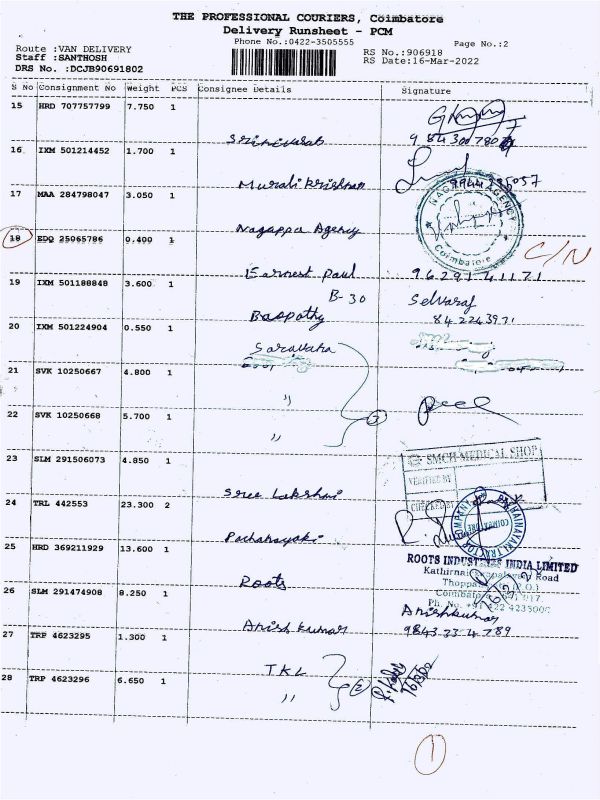 THE PROFESSIONAL COURIERS, Coimbatore
Delivery Runsheet - PCM
Phone No.:0422-3505555
Page No.:2
Route :VAN DELIVERY
RS No.:906918
Staff :SANTHOSH
RS Date:16-Mar-2022
DRS No. :DCJB90691802
S No Consignment No Weight PCS Consignee Details Signature
15 HRD 707757799 7.750 1
Srinivasan
16 IXM 501214452 1.700 1
Murali Krishnan
17 MAA 284798047 3.050 1
NAGAPPA AGENCY
Coimbatore
Nagappa Agency
18 EDQ 25065786 0.400 1
C/N
Earnest Paul 9629141171
19 IXM 501188848 3.600 1
B-30 Selvaraj
Baspathy
20 IXM 501224904 0.550 1
Saravana
21 SVK 10250667 4.800 1
"
22 SVK 10250668 5.700 1
"
23 SLM 291506073 4.850 1
SMCH MEDICAL SHOP
VERIFIED BY
CHECKED BY
Sree Lakshmi
24 TRL 442553 23.300 2
PACHAINAYAKI TRACTOR COMPANY
COIMBATORE
25 HRD 369211929 13.600 1
ROOTS INDUSTRIES INDIA LIMITED
Road
Roots
Ph. No. +91 422
26 SLM 291474908 8.250 1
Anishkumar
Anish Kumar 9843334789
27 TRP 4623295 1.300 1
TKL
2
28 TRP 4623296 6.650 1
"
1